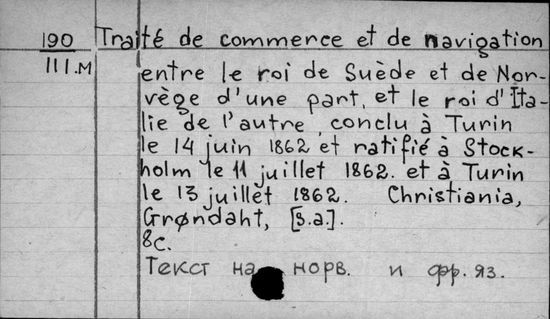 190 Traité de commerce et de navigation
III.M
entre le roi de Suède et de Nor-
vège d'une part, et le roi d'Ita-
lie de l'autre, conclu à Turin
le 14 juin 1862 et ratifié à Stock-
holm le 11 juillet 1862. et à Turin
le 13 juillet 1862. Christiania,
Grøndaht, [s.a.].
8c.
Текст на норв. и фр. яз.